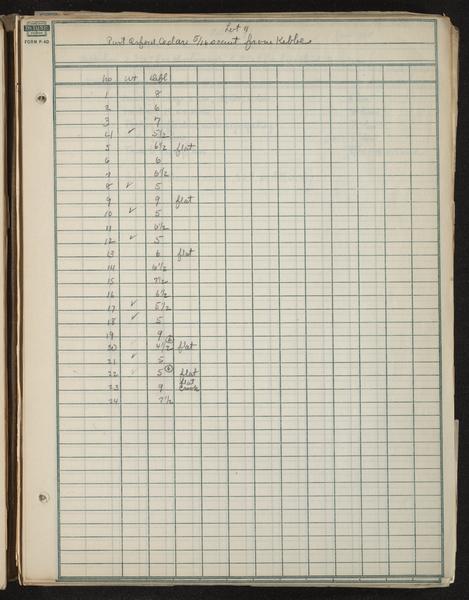 FORM P-40
Lot 11
Port Orford Cedar 5/16 from Kibbe
No Wt Defl
1 8
2 6
3 7
4 ✓ 5 1/2
5 6 1/2 flat
6 6
7 6 1/2
8 ✓ 5
9 9 flat
10 ✓ 5
11 6 1/2
12 ✓ 5
13 6 flat
14 6 1/2
15 7 1/2
16 6 1/2
17 ✓ 5 1/2
18 ✓ 5
19 9
20 4 1/2 flat
21 ✓ 5
22 5 flat
23 9 flat
24 7 1/2